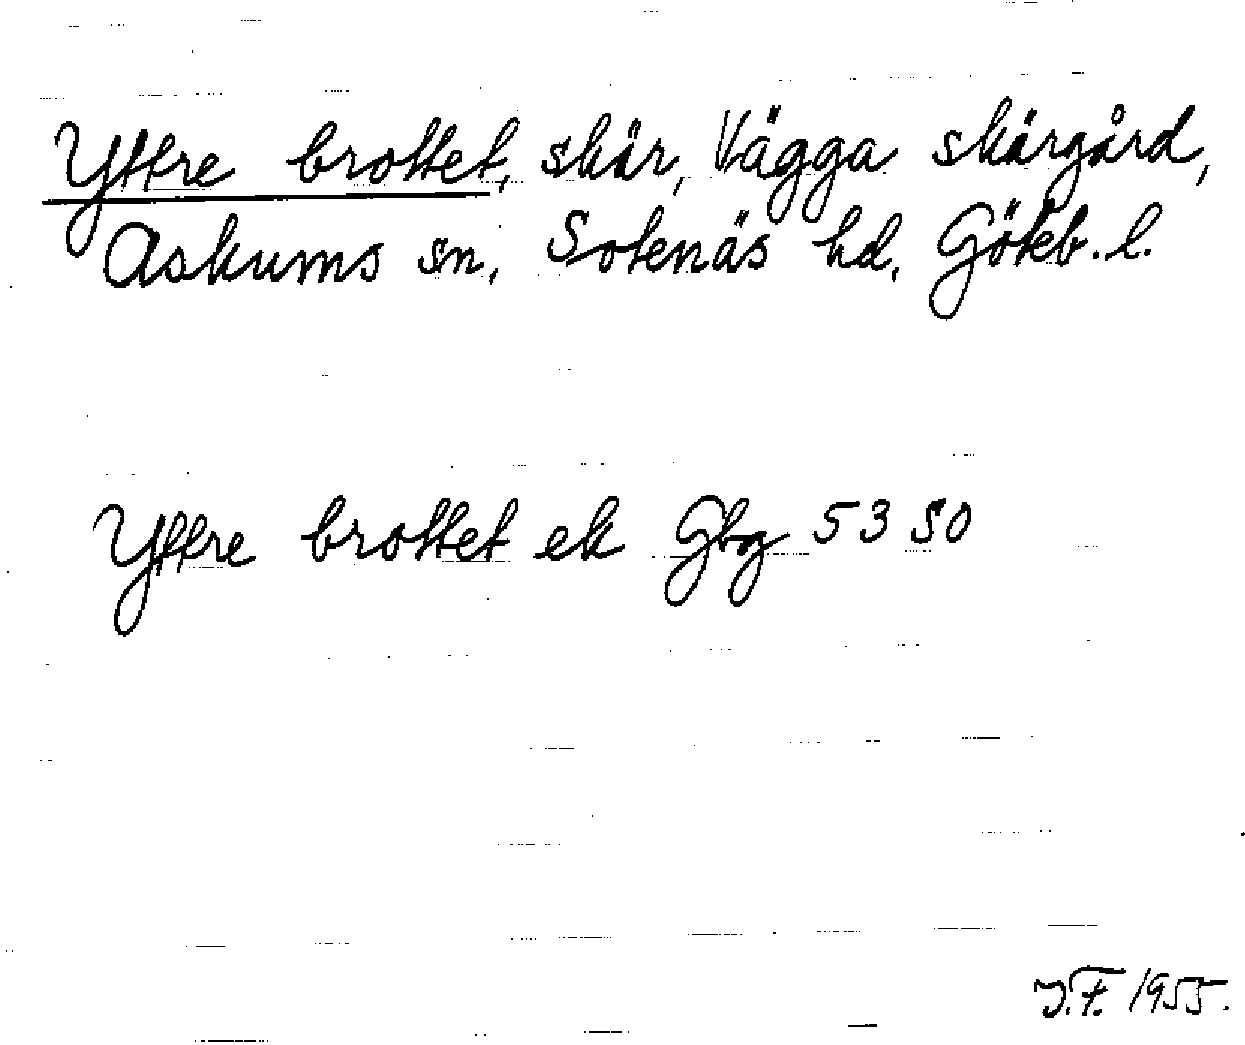 Yttre brottet, skär, Vägga skärgård,
Askums sn, Sotenäs hd, Göteb. l.
Yttre brottet ek Gbg 53 SO
J.F. 1955.